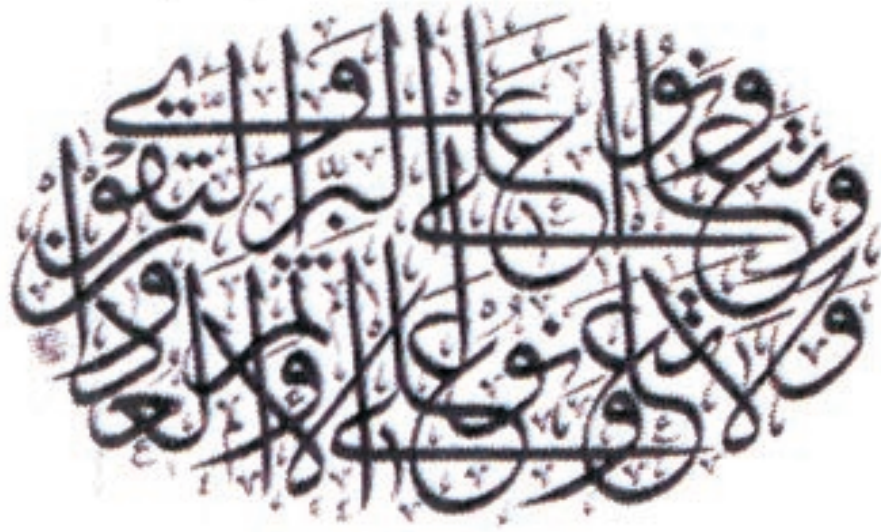 وتعاونوا على البر والتقوى
ولا تعاونوا على الإثم والعدوان